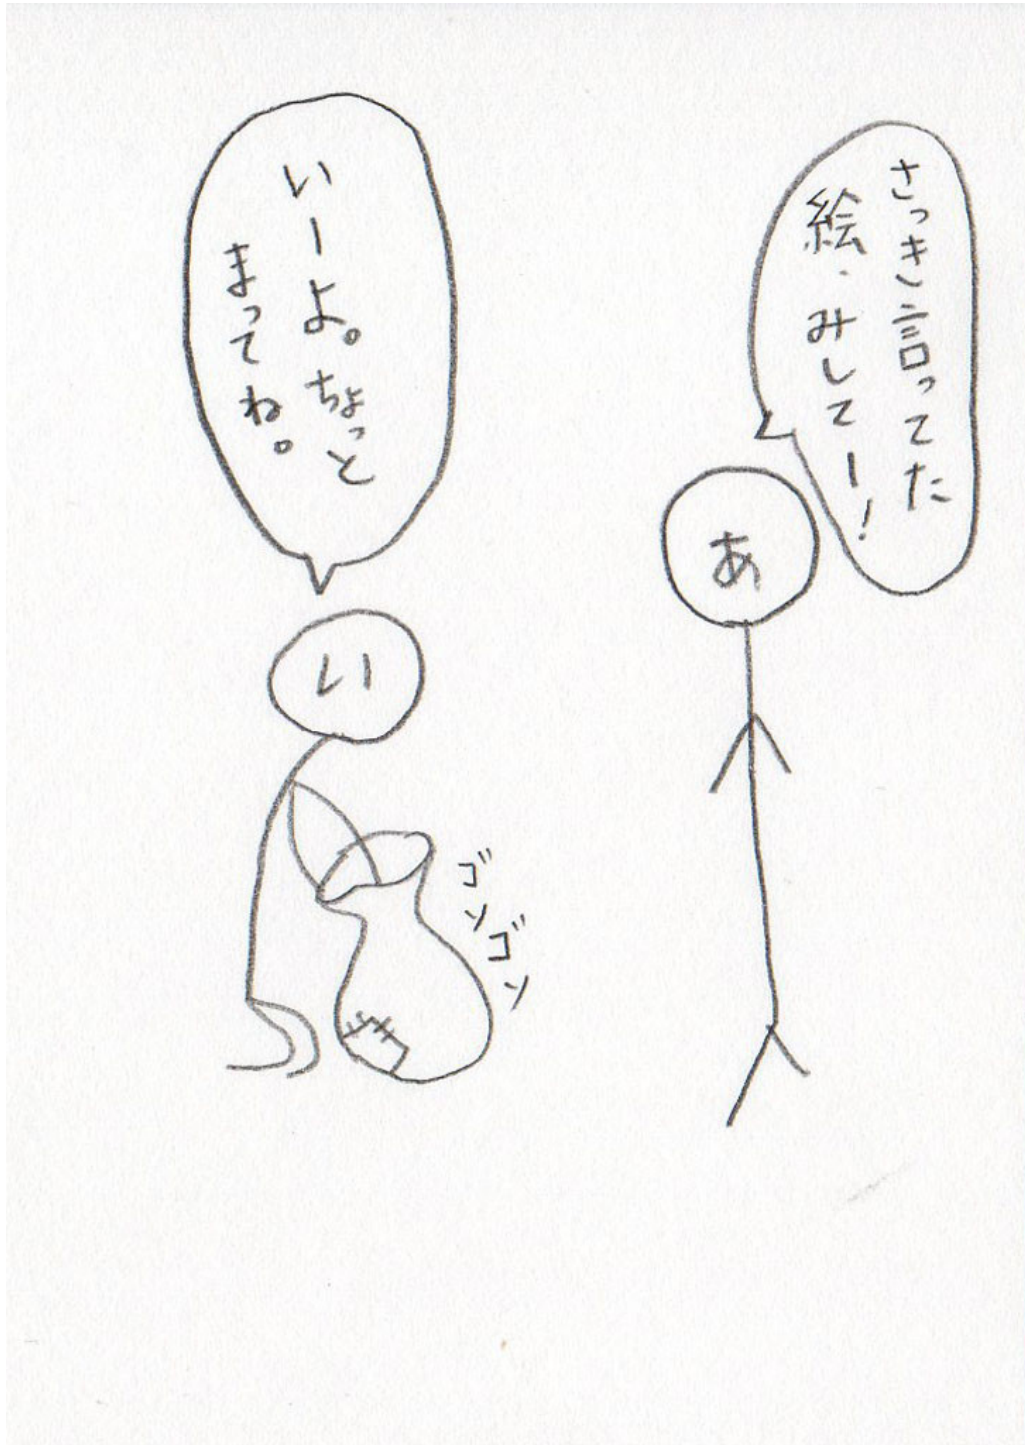 さっき言ってた
絵、みしてー!
あ
いーよ。ちょっと
まってね。
い
ゴソゴソ